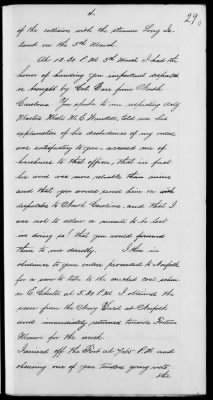 4.
29
of the collision with the steamer Long Is-
land on the 5th March.
At 12.50 P.M. 5th March I had the
honor of handing you important dispatch-
es brought by Col. Carr from North
Carolina. You spoke to me respecting Actg
Master Mate H. E. Howdens, told me his
explanation of his disobedience of my orders
was satisfactory to you, accused me of
harshness to that officer, that in fact
his word was more reliable than mine
and that you would send him on with
dispatches to North Carolina, and that I
was not to allow a minute to be lost
in doing so; that you would forward
them to me directly. I then in
obedience to your orders proceeded to Norfolk
for a scow to take to the wrecked coal schoon-
er E. Sheeter at 5.20 P.M. I obtained the
scow from the Navy Yard at Norfolk
and immediately returned towards Fortress
Monroe for the wreck.
I arrived off the Fort at 7.45 P.M. and
observing one of your tenders going into
the